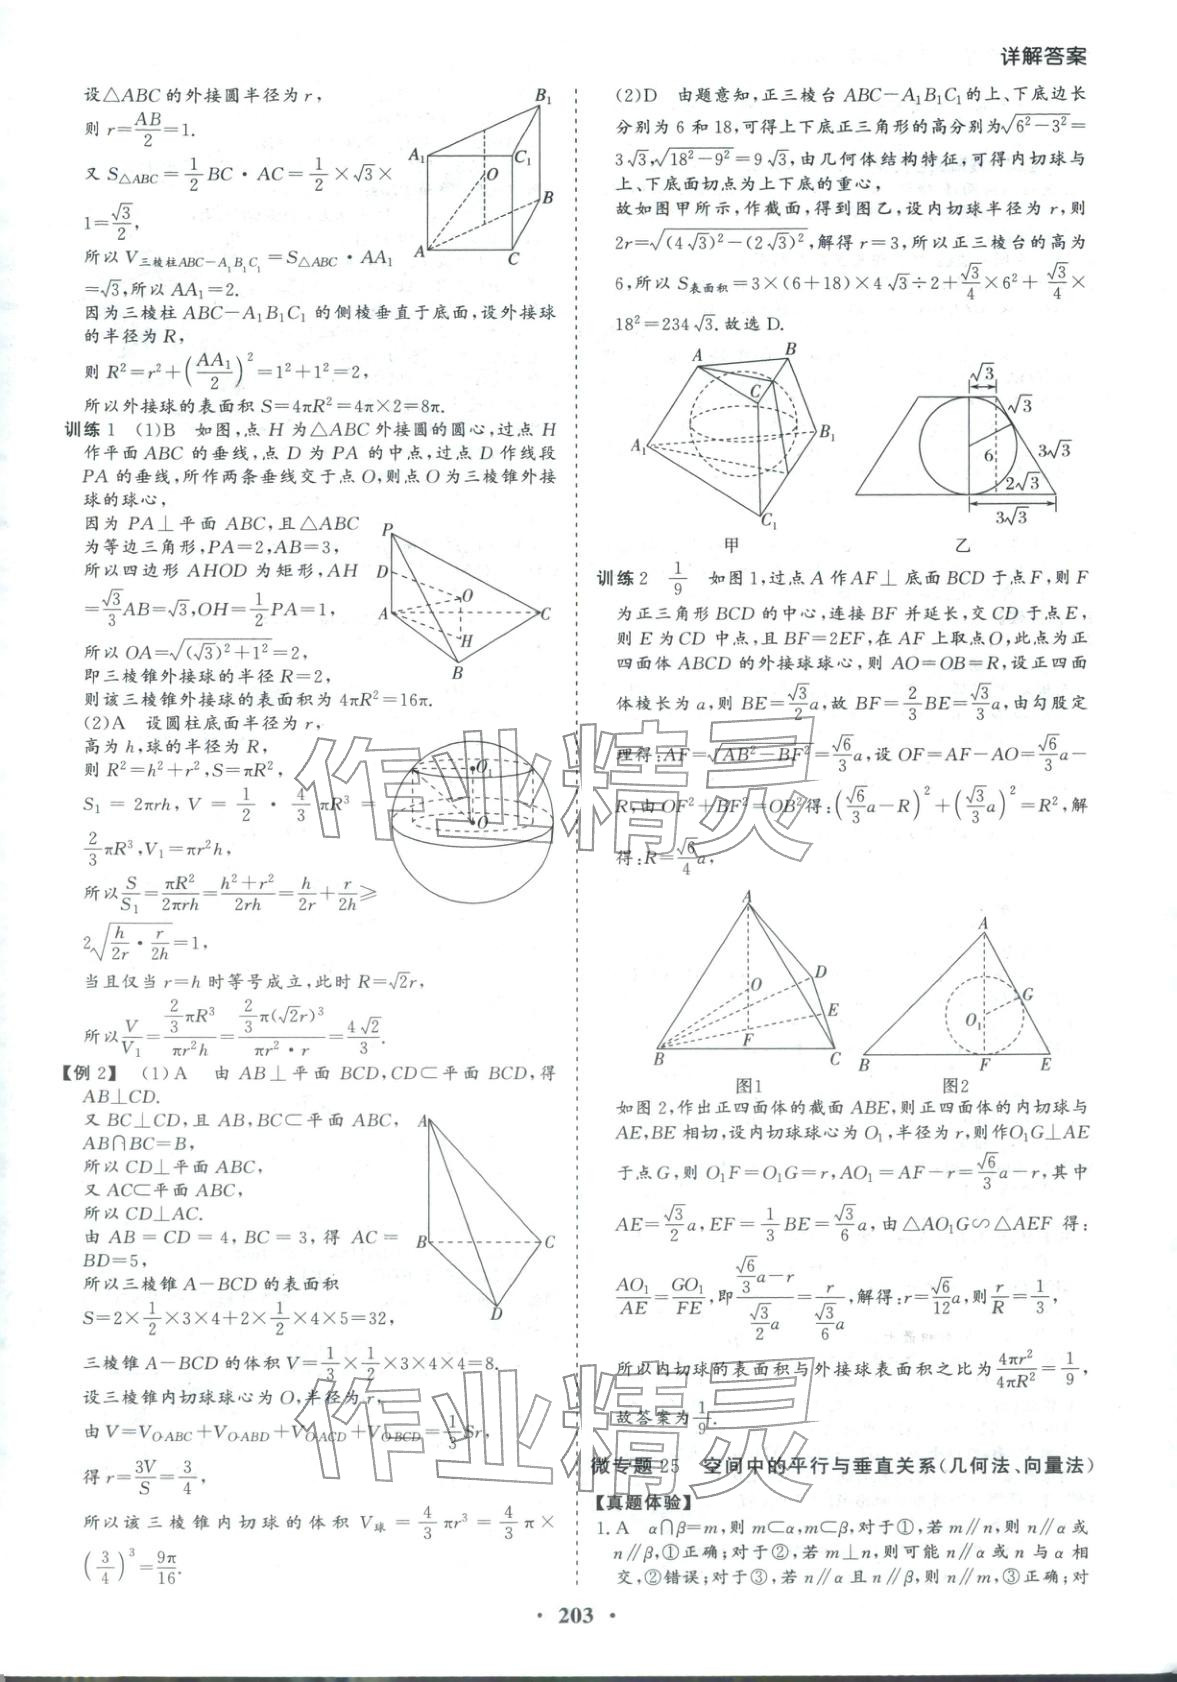 详解答案
设△ABC的外接圆半径为r,
则r=AB/2=1.
又S△ABC=1/2 BC·AC=1/2×√3×
1=√3/2,
所以V三棱柱ABC-A₁B₁C₁=S△ABC·AA₁
=√3,所以AA₁=2.
因为三棱柱ABC-A₁B₁C₁的侧棱垂直于底面,设外接球
的半径为R,
则R²=r²+(AA₁/2)²=1²+1²=2,
所以外接球的表面积S=4πR²=4π×2=8π.
A₁
B₁
C₁
O
B
A
C
训练1 (1)B 如图,点H为△ABC外接圆的圆心,过点H
作平面ABC的垂线,点D为PA的中点,过点D作线段
PA的垂线,所作两条垂线交于点O,则点O为三棱锥外接
球的球心,
因为PA⊥平面ABC,且△ABC
为等边三角形,PA=2,AB=3,
所以四边形AHOD为矩形,AH
=√3/3 AB=√3,OH=1/2 PA=1,
所以OA=√((√3)²+1²)=2,
即三棱锥外接球的半径R=2,
则该三棱锥外接球的表面积为4πR²=16π.
P
D
O
A
C
H
B
(2)A 设圆柱底面半径为r,
高为h,球的半径为R,
则R²=h²+r²,S=πR²,
S₁=2πrh,V=1/2·4/3πR³=
2/3πR³,V₁=πr²h,
所以S/S₁=πR²/2πrh=(h²+r²)/2rh=h/2r+r/2h≥
2√(h/2r·r/2h)=1,
当且仅当r=h时等号成立,此时R=√2r,
所以V/V₁=(2/3πR³)/(πr²h)=(2/3π(√2r)³)/(πr²·r)=4√2/3.
O₁
O
【例2】 (1)A 由AB⊥平面BCD,CD⊂平面BCD,得
AB⊥CD.
又BC⊥CD,且AB,BC⊂平面ABC,
AB∩BC=B,
所以CD⊥平面ABC,
又AC⊂平面ABC,
所以CD⊥AC.
由AB=CD=4,BC=3,得AC=
BD=5,
所以三棱锥A-BCD的表面积
S=2×1/2×3×4+2×1/2×4×5=32,
三棱锥A-BCD的体积V=1/3×1/2×3×4×4=8.
设三棱锥内切球球心为O,半径为r,
由V=V_O-ABC+V_O-ABD+V_O-ACD+V_O-BCD=1/3 Sr,
得r=3V/S=3/4,
所以该三棱锥内切球的体积V球=4/3πr³=4/3π×
(3/4)³=9π/16.
A
B
C
D
(2)D 由题意知,正三棱台ABC-A₁B₁C₁的上、下底边长
分别为6和18,可得上下底正三角形的高分别为√(6²-3²)=
3√3,√(18²-9²)=9√3,由几何体结构特征,可得内切球与
上、下底面切点为上下底的重心,
故如图甲所示,作截面,得到图乙,设内切球半径为r,则
2r=√((4√3)²-(2√3)²),解得r=3,所以正三棱台的高为
6,所以S表面积=3×(6+18)×4√3÷2+√3/4×6²+√3/4×
18²=234√3.故选D.
A
B
C
A₁
B₁
C₁
甲
√3
√3
6
3√3
2√3
3√3
乙
训练2 1/9 如图1,过点A作AF⊥底面BCD于点F,则F
为正三角形BCD的中心,连接BF并延长,交CD于点E,
则E为CD中点,且BF=2EF,在AF上取点O,此点为正
四面体ABCD的外接球球心,则AO=OB=R,设正四面
体棱长为a,则BE=√3/2 a,故BF=2/3 BE=√3/3 a,由勾股定
理得:AF=√(AB²-BF²)=√6/3 a,设OF=AF-AO=√6/3 a-
R,由OF²+BF²=OB²得:(√6/3 a-R)²+(√3/3 a)²=R²,解
得:R=√6/4 a,
A
D
O
E
B
F
C
图1
A
G
O₁
B
F
E
图2
如图2,作出正四面体的截面ABE,则正四面体的内切球与
AE,BE相切,设内切球球心为O₁,半径为r,则作O₁G⊥AE
于点G,则O₁F=O₁G=r,AO₁=AF-r=√6/3 a-r,其中
AE=√3/2 a,EF=1/3 BE=√3/6 a,由△AO₁G∽△AEF得:
AO₁/AE=GO₁/FE,即(√6/3 a-r)/(√3/2 a)=r/(√3/6 a),解得:r=√6/12 a,则r/R=1/3,
所以内切球的表面积与外接球表面积之比为4πr²/4πR²=1/9,
故答案为1/9.
微专题25 空间中的平行与垂直关系(几何法、向量法)
【真题体验】
1.A α∩β=m,则m⊂α,m⊂β,对于①,若m∥n,则n∥α或
n∥β,①正确;对于②,若m⊥n,则可能n∥α或n与α相
交,②错误;对于③,若n∥α且n∥β,则n∥m,③正确;对
作业精灵
作业精灵
· 203 ·